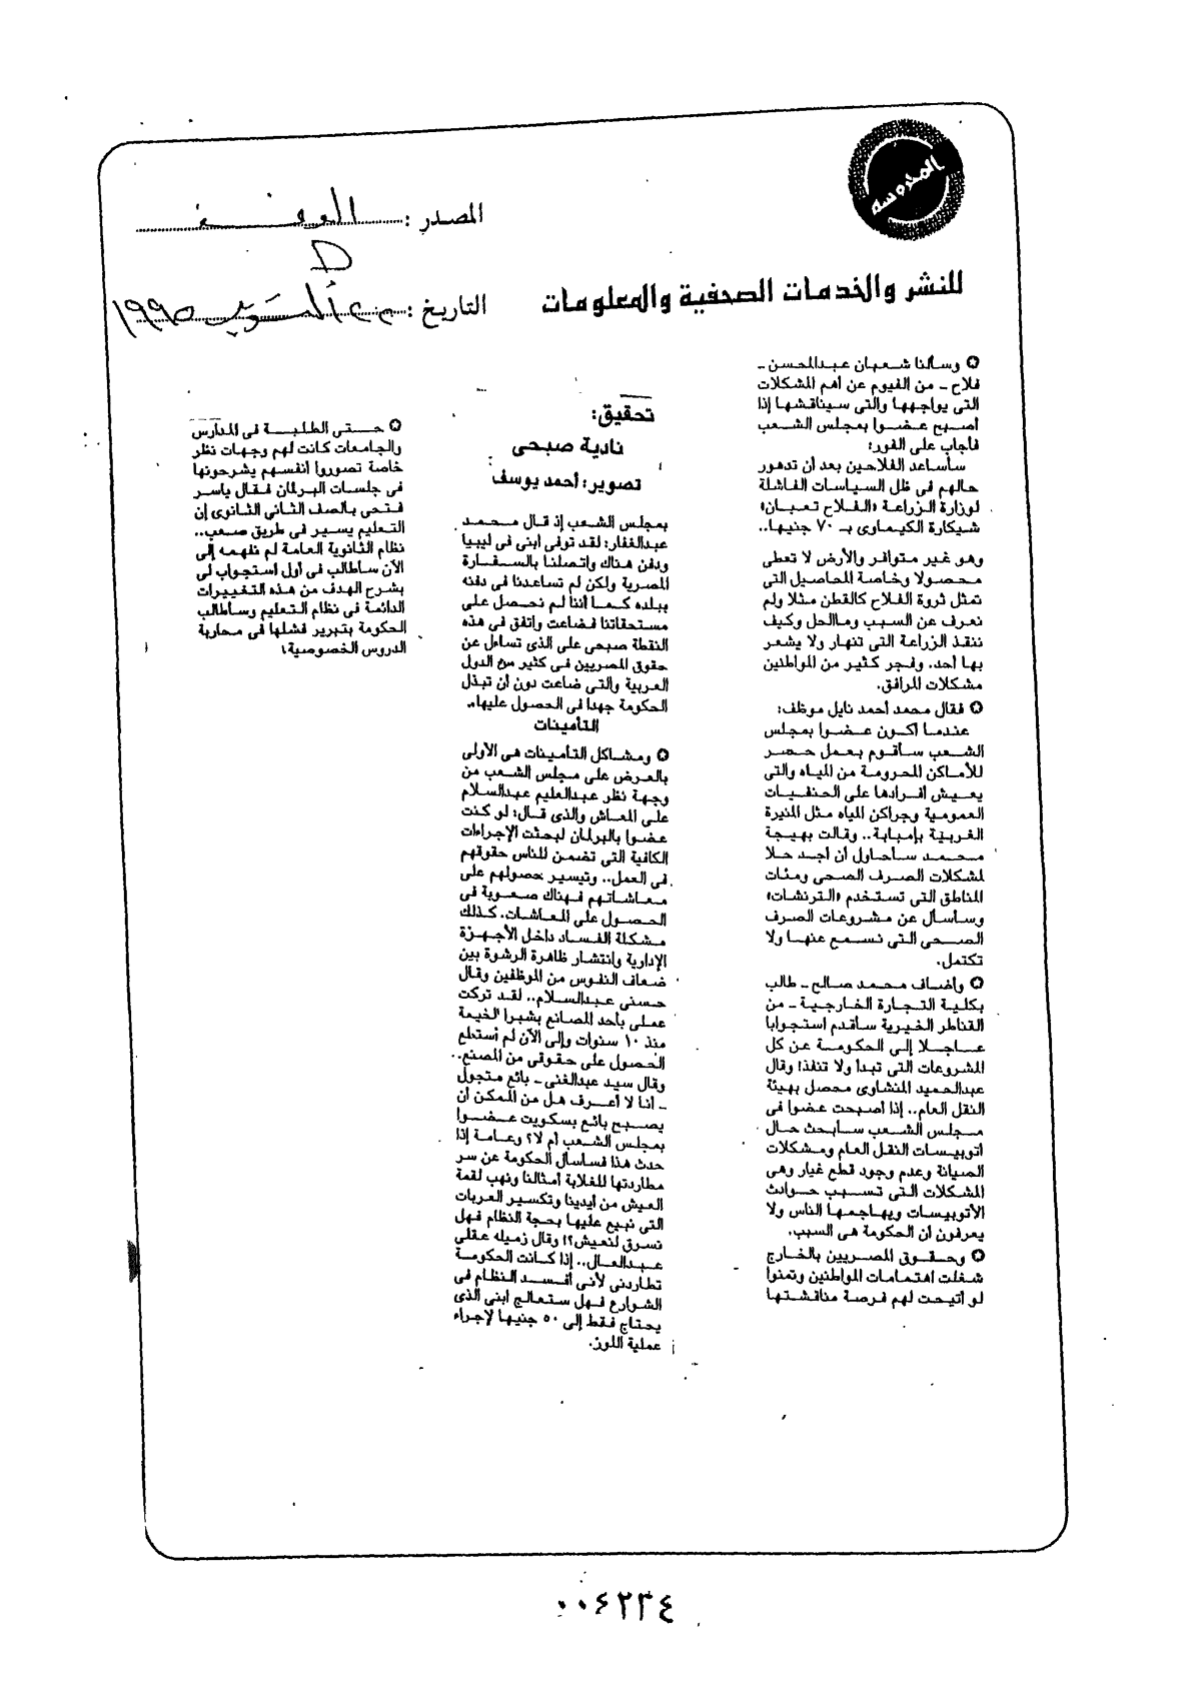 المحروسة
المصدر : الوفد
للنشر والخدمات الصحفية والمعلومات
التاريخ : أكتوبر ١٩٩٥
✪ وسألنا شعبان عبدالمحسن ـ
فلاح ـ من الفيوم عن أهم المشكلات
التى يواجهها والتى سيناقشها إذا
أصبح عضوا بمجلس الشعب
فأجاب على الفور:
سأساعد الفلاحين بعد أن تدهور
حالهم فى ظل السياسات الفاشلة
لوزارة الزراعة «الفلاح تعبان»
شيكارة الكيماوى بـ ٧٠ جنيها..
وهو غير متوافر والأرض لا تعطى
محصولا وخاصة المحاصيل التى
تمثل ثروة الفلاح كالقطن مثلا ولم
نعرف عن السبب وماالحل وكيف
ننقذ الزراعة التى تنهار ولا يشعر
بها أحد. وفجر كثير من المواطنين
مشكلات المرافق.
✪ فقال محمد أحمد نايل موظف:
عندما أكون عضوا بمجلس
الشعب سأقوم بعمل حصر
للأماكن المحرومة من المياه والتى
يعيش أفرادها على الحنفيات
العمومية وجراكن المياه مثل المنيرة
الغربية بإمبابة.. وقالت بهيجة
محمد سأحاول أن أجد حلا
لمشكلات الصرف الصحى ومئات
المناطق التى تستخدم «الترنشات»
وسأسأل عن مشروعات الصرف
الصحى التى نسمع عنها ولا
تكتمل.
✪ وأضاف محمد صالح ـ طالب
بكلية التجارة الخارجية ـ من
القناطر الخيرية سأقدم استجوابا
عاجلا إلى الحكومة عن كل
المشروعات التى تبدأ ولا تنفذ! وقال
عبدالحميد المنشاوى محصل بهيئة
النقل العام.. إذا أصبحت عضوا فى
مجلس الشعب سأبحث حال
أتوبيسات النقل العام ومشكلات
الصيانة وعدم وجود قطع غيار وهى
المشكلات التى تسبب حوادث
الأتوبيسات ويهاجمها الناس ولا
يعرفون أن الحكومة هى السبب.
✪ وحقوق المصريين بالخارج
شغلت اهتمامات المواطنين وتمنوا
لو أتيحت لهم فرصة مناقشتها
تحقيق:
نادية صبحى
تصوير: أحمد يوسف
بمجلس الشعب إذ قال محمد
عبدالغفار: لقد توفى ابنى فى ليبيا
ودفن هناك واتصلنا بالسفارة
المصرية ولكن لم تساعدنا فى دفنه
ببلده كما أننا لم نحصل على
مستحقاتنا فضاعت واتفق فى هذه
النقطة صبحى على الذى تساءل عن
حقوق المصريين فى كثير من الدول
العربية والتى ضاعت دون أن تبذل
الحكومة جهدا فى الحصول عليها.
التأمينات
✪ ومشاكل التأمينات هى الأولى
بالعرض على مجلس الشعب من
وجهة نظر عبدالعليم عبدالسلام
على المعاش والذى قال: لو كنت
عضوا بالبرلمان لبحثت الإجراءات
الكافية التى تضمن للناس حقوقهم
فى العمل.. وتيسير حصولهم على
معاشاتهم فهناك صعوبة فى
الحصول على المعاشات. كذلك
مشكلة الفساد داخل الأجهزة
الإدارية وانتشار ظاهرة الرشوة بين
ضعاف النفوس من الموظفين وقال
حسنى عبدالسلام.. لقد تركت
عملى بأحد المصانع بشبرا الخيمة
منذ ١٠ سنوات وإلى الآن لم أستطع
الحصول على حقوقى من المصنع..
وقال سيد عبدالغنى ـ بائع متجول
ـ أنا لا أعرف هل من الممكن أن
يصبح بائع بسكويت عضوا
بمجلس الشعب أم لا؟ وعامة إذا
حدث هذا فسأسأل الحكومة عن سر
مطاردتها للغلابة أمثالنا ونهب لقمة
العيش من أيدينا وتكسير العربات
التى نبيع عليها بحجة النظام فهل
نسرق لنعيش؟! وقال زميله عقلى
عبدالعال.. إذا كانت الحكومة
تطاردنى لأنى أفسد النظام فى
الشوارع فهل ستعالج ابنى الذى
يحتاج فقط إلى ٥٠ جنيها لإجراء
عملية اللوز.
✪ حتى الطلبة فى المدارس
والجامعات كانت لهم وجهات نظر
خاصة تصوروا أنفسهم يشرحونها
فى جلسات البرلمان فقال ياسر
فتحى بالصف الثانى الثانوى إن
التعليم يسير فى طريق صعب..
نظام الثانوية العامة لم نفهمه إلى
الآن سأطالب فى أول استجواب لى
بشرح الهدف من هذه التغييرات
الدائمة فى نظام التعليم وسأطالب
الحكومة بتبرير فشلها فى محاربة
الدروس الخصوصية!
٠٠٤٢٣٤